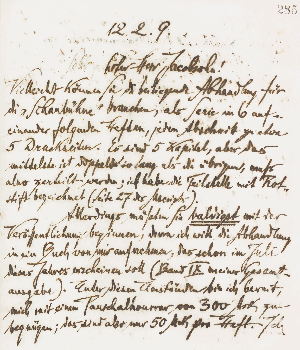 285
12. 2. 9.
Lieber Herr Jacobsohn!
Vielleicht können Sie die beiliegende Abhandlung für
die „Schaubühne“ brauchen; als Serie in 6 auf-
einander folgenden Heften, jeder Abschnitt zu etwa
5 Druckseiten. Es sind 5 Kapitel, aber das
mittelste ist doppelt so lang als die übrigen, muß
also zerteilt werden; ich habe die Teilstelle mit Rot-
stift bezeichnet (Seite 27 des Manuscr.).
Allerdings müßten Sie baldigst mit der
Veröffentlichung beginnen, denn ich will die Abhandlung
in ein Buch von mir aufnehmen, das schon im Juli
dieses Jahres erscheinen soll (Band IX meiner Gesamt-
ausgabe). Unter diesen Umständen bin ich bereit,
mich mit einem Pauschalhonorar von 300 Mk. zu
begnügen; das sind aber nur 50 Mk. pro Heft. Ich